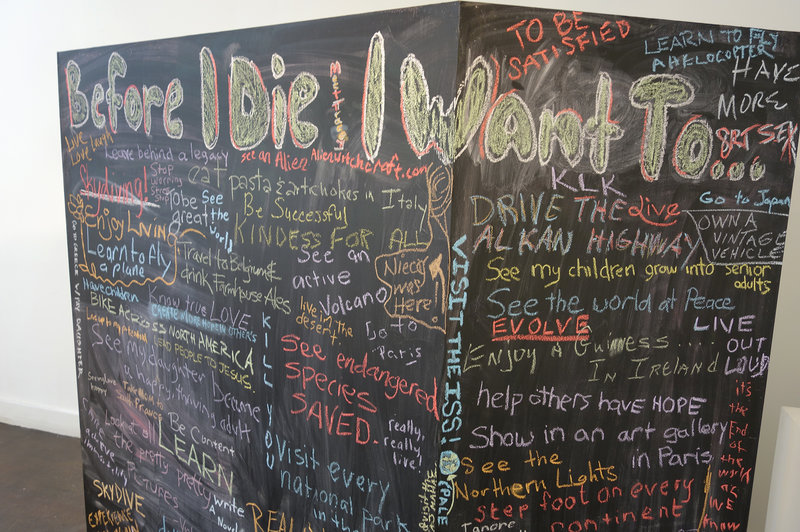 Before I Die! I Want To...
Live,
Love, laugh
Leave behind a legacy
see an Alien Alienwitchcraft.com
Skydiving!
Stop
worrying
eat pasta & artichokes in Italy
To be
great
See
the
world
Be Successful
KINDESS FOR ALL
Enjoy LIVING
Learn to fly
a plane
Travel to Belgium &
drink Farmhouse Ales
See an
active
Volcano
Niecy
was
Here!
Have children
Know true LOVE
CREATE MORE HOPE IN OTHERS
live in the
desert
Go to
Paris
BIKE ACROSS NORTH AMERICA
LEAD PEOPLE TO JESUS.
KILL YOU
See my daughter become
a happy, thriving adult
See endangered
species
SAVED.
really,
really,
live!
Be Content
LEARN
Look at all
the pretty pretty
Pictures
write
Novel
Visit every
national park
in the
SKYDIVE
EXPERIENCE
VISIT THE ISS!
TO BE
SATISFIED
LEARN TO FLY
A HELOCOPTER
HAVE
MORE
GRT SEX
KLK
Go to Japan
DRIVE THE Live
ALKAN HIGHWAY
OWN A
VINTAGE
VEHICLE
See my children grow into senior
adults
See the world at Peace
EVOLVE
LIVE
OUT
LOUD
Enjoy A Guinness ....
IN IRELAND
help others have HOPE
Show in an art gallery
in Paris
it's
the
End
of
the
world
as
we
know
See the
Northern Lights
step foot on every
continent
Ignore